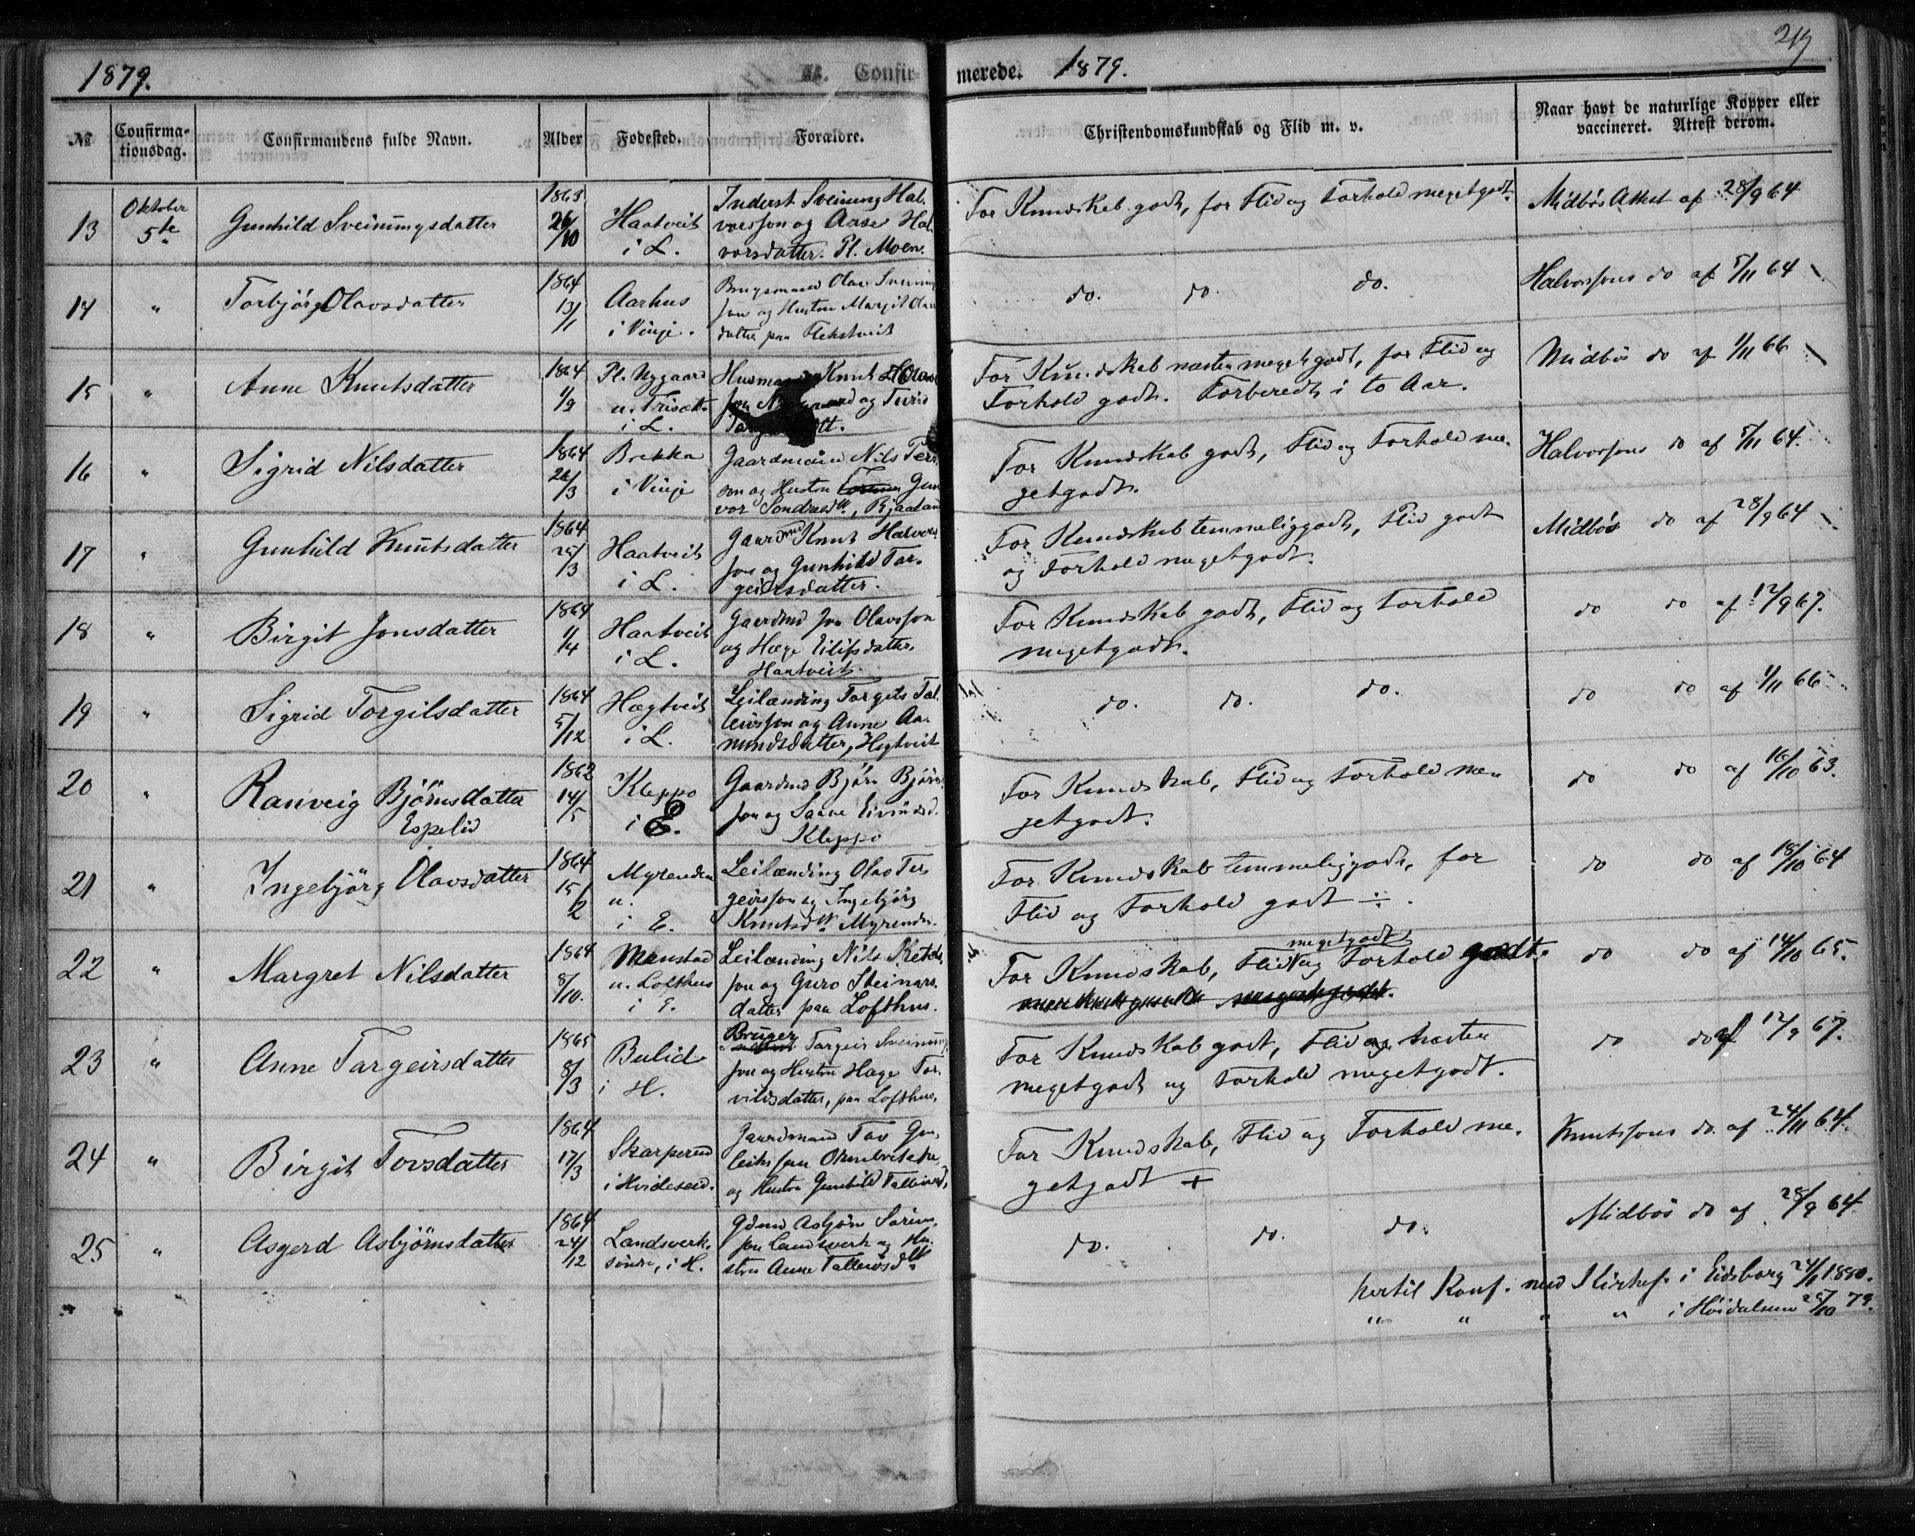 1879.
II. Confirmerede. 1879.
№ Confirmationsdag. Confirmandens fulde Navn. Alder Fødested. Forældre. Christendomskundskab og Flid m. v. Naar havt de naturlige Kopper eller vaccineret. Attest derom.
13 Oktober 5te Gunhild Sveinungsdatter
1863 26/10
Haatveit
i L.
Inderst Sveinung Hal-
vorsson og Aase Hal-
vorsdatter. Pl. Moen.
For Kundskab godt, for Flid og Forhold megetgodt.
Midbøs Attest af 28/9 64
14 " Torbjörg Olavsdatter
1864 13/1
Aarhus
i Vinje.
Brugsmand Olav Sveinungs
søn og Hustru Margit Olavs
datter paa Flekstveit
do. do. do.
Halvorssons do af 5/11 64
15 " Anne Knutsdatter
1864 1/9
Pl. Nygaard
u. Triset
i L.
Husmand Knut Olavs
søn og Turid
For Kundskab næsten megetgodt, for Flid og
Forhold godt. Forberedt i to Aar.
Midbø do af 1/11 66
16 " Sigrid Nilsdatter
1864 26/3
Brekka
i Vinje
Gaardmand Nils Ters
son og Hustru Gun
vor Sondresdtr, Bjaaland
For Kundskab godt, Flid og Forhold me-
getgodt.
Halvorssons do af 5/11 64.
17 " Gunhild Knutsdatter
1864 25/3
Haatveit
i L.
Gaardmd Knut Halvors
søn og Gunhild Tar-
geirsdatter.
For Kundskab temmeliggodt, Flid godt
og Forhold megetgodt.
Midbøs do af 28/9 64
18 " Birgit Jonsdatter
1864 1/4
Haatveit
i L.
Gaardmd Jon Olavsson
og Hæge Eilifsdatter,
Haatveit.
For Kundskab godt, Flid og Forhold
megetgodt.
do do af 12/9 67.
19 " Sigrid Torgilsdatter
1864 5/12
Hægtveit
i L.
Leilænding Torgils Tal-
leivsson og Anne Aa-
mundsdatter, Hegtveit
do. do. do.
do do af 1/11 66
20 " Ranveig Björnsdatter
Espelid
1862 14/5
Kleppo
i E.
Gaardmd Björn Björns
søn og Eivindsd.
Kleppo
For Kundskab, Flid og Forhold me-
getgodt.
do do af 16/10 63.
21 " Ingebjörg Olavsdatter
1864 15/2
Myrendn
u.
i E.
Leilænding Olav Tar
geirsson og Ingebjörg
Knutsdtr Myrendn.
For Kundskab temmeliggodt, for
Flid og Forhold godt ÷.
do do af 18/10 64
22 " Margret Nilsdatter
1864 8/10.
u. Lofthus
i E.
Leilænding Nils Ketils
søn og Guro Steinars-
datter paa Lofthus.
megetgodt
For Kundskab, Flid og Forhold godt.
do do af 14/10 65.
23 " Anne Targeirsdatter
1865 8/3
Bulid
i H.
Bruger
Targeir Sveinungs
søn og Hustru Hæge Tor-
vildsdatter, paa Lofthus,
For Kundskab godt, Flid næsten
megetgodt og Forhold megetgodt.
do do af 12/9 67.
24 " Birgit Tovsdatter
1864 17/3
Skarperud
i Hvideseid.
Gaardmand Tov Gun-
leiksson
og Hustru Gunhild Talleivsd,
For Kundskab, Flid og Forhold me-
getgodt +
Knutssons do. af 24/11 64.
25 " Asgerd Asbjörnsdatter
1864 24/12
Landsverk
søndre, i H.
Gdmd Asbjörn
søn Landsverk og Hu-
stru Anne Talleivsdtr
do. do. do.
Midbøs do af 28/9 64.
" "
hertil Konf. med i Eidsborg 24/1 1880.
" " " " i Høidalsmo 26/10 79.